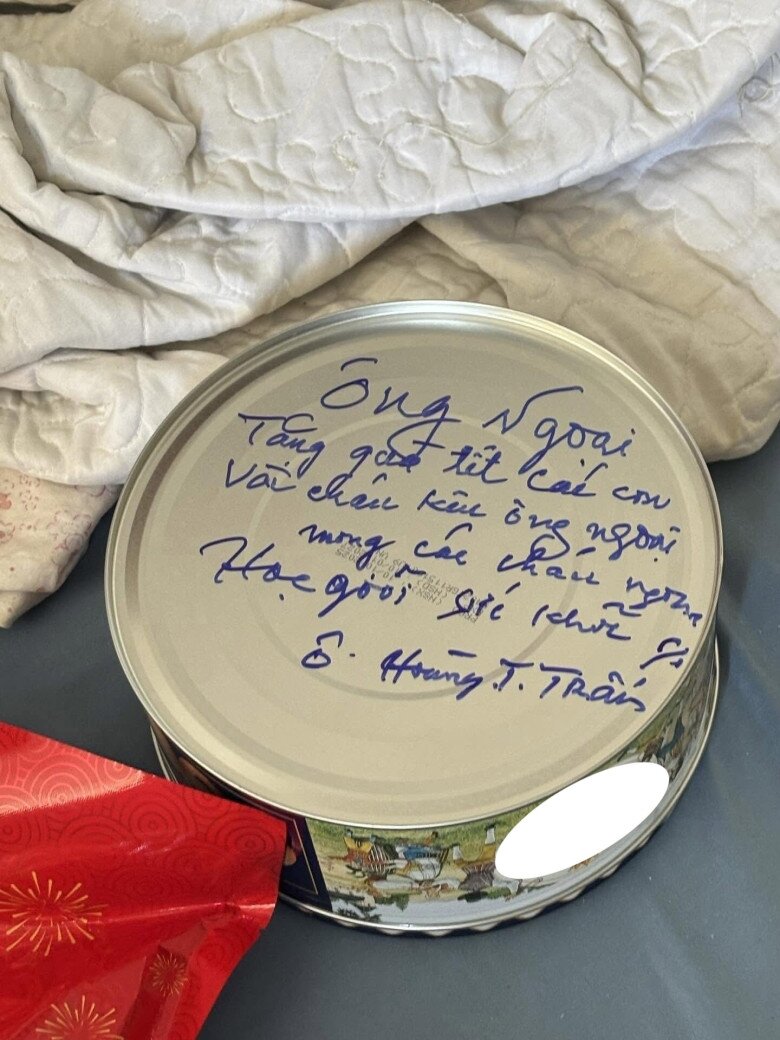 Ông Ngoại
Tặng quà tết các con
Với cháu kêu ông ngoại
mong các cháu ngoan
Học giỏi sức khỏe
Ô. Hoàng.T.Trần